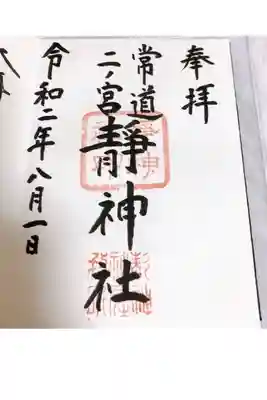 奉拝
常道
二ノ宮靜神社
令和二年八月一日